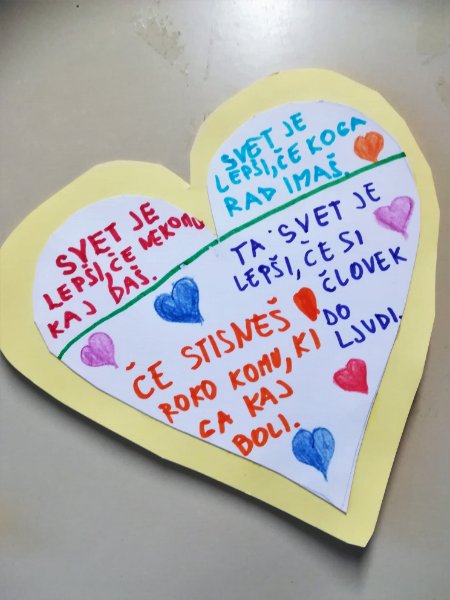 SVET JE
LEPŠI, ČE NEKOMU
KAJ DAŠ.
SVET JE
LEPŠI, ČE KOGA
RAD IMAŠ.
TA SVET JE
LEPŠI, ČE SI
ČLOVEK
DO
LJUDI.
ČE STISNEŠ
ROKO KOMU, KI
GA KAJ
BOLI.